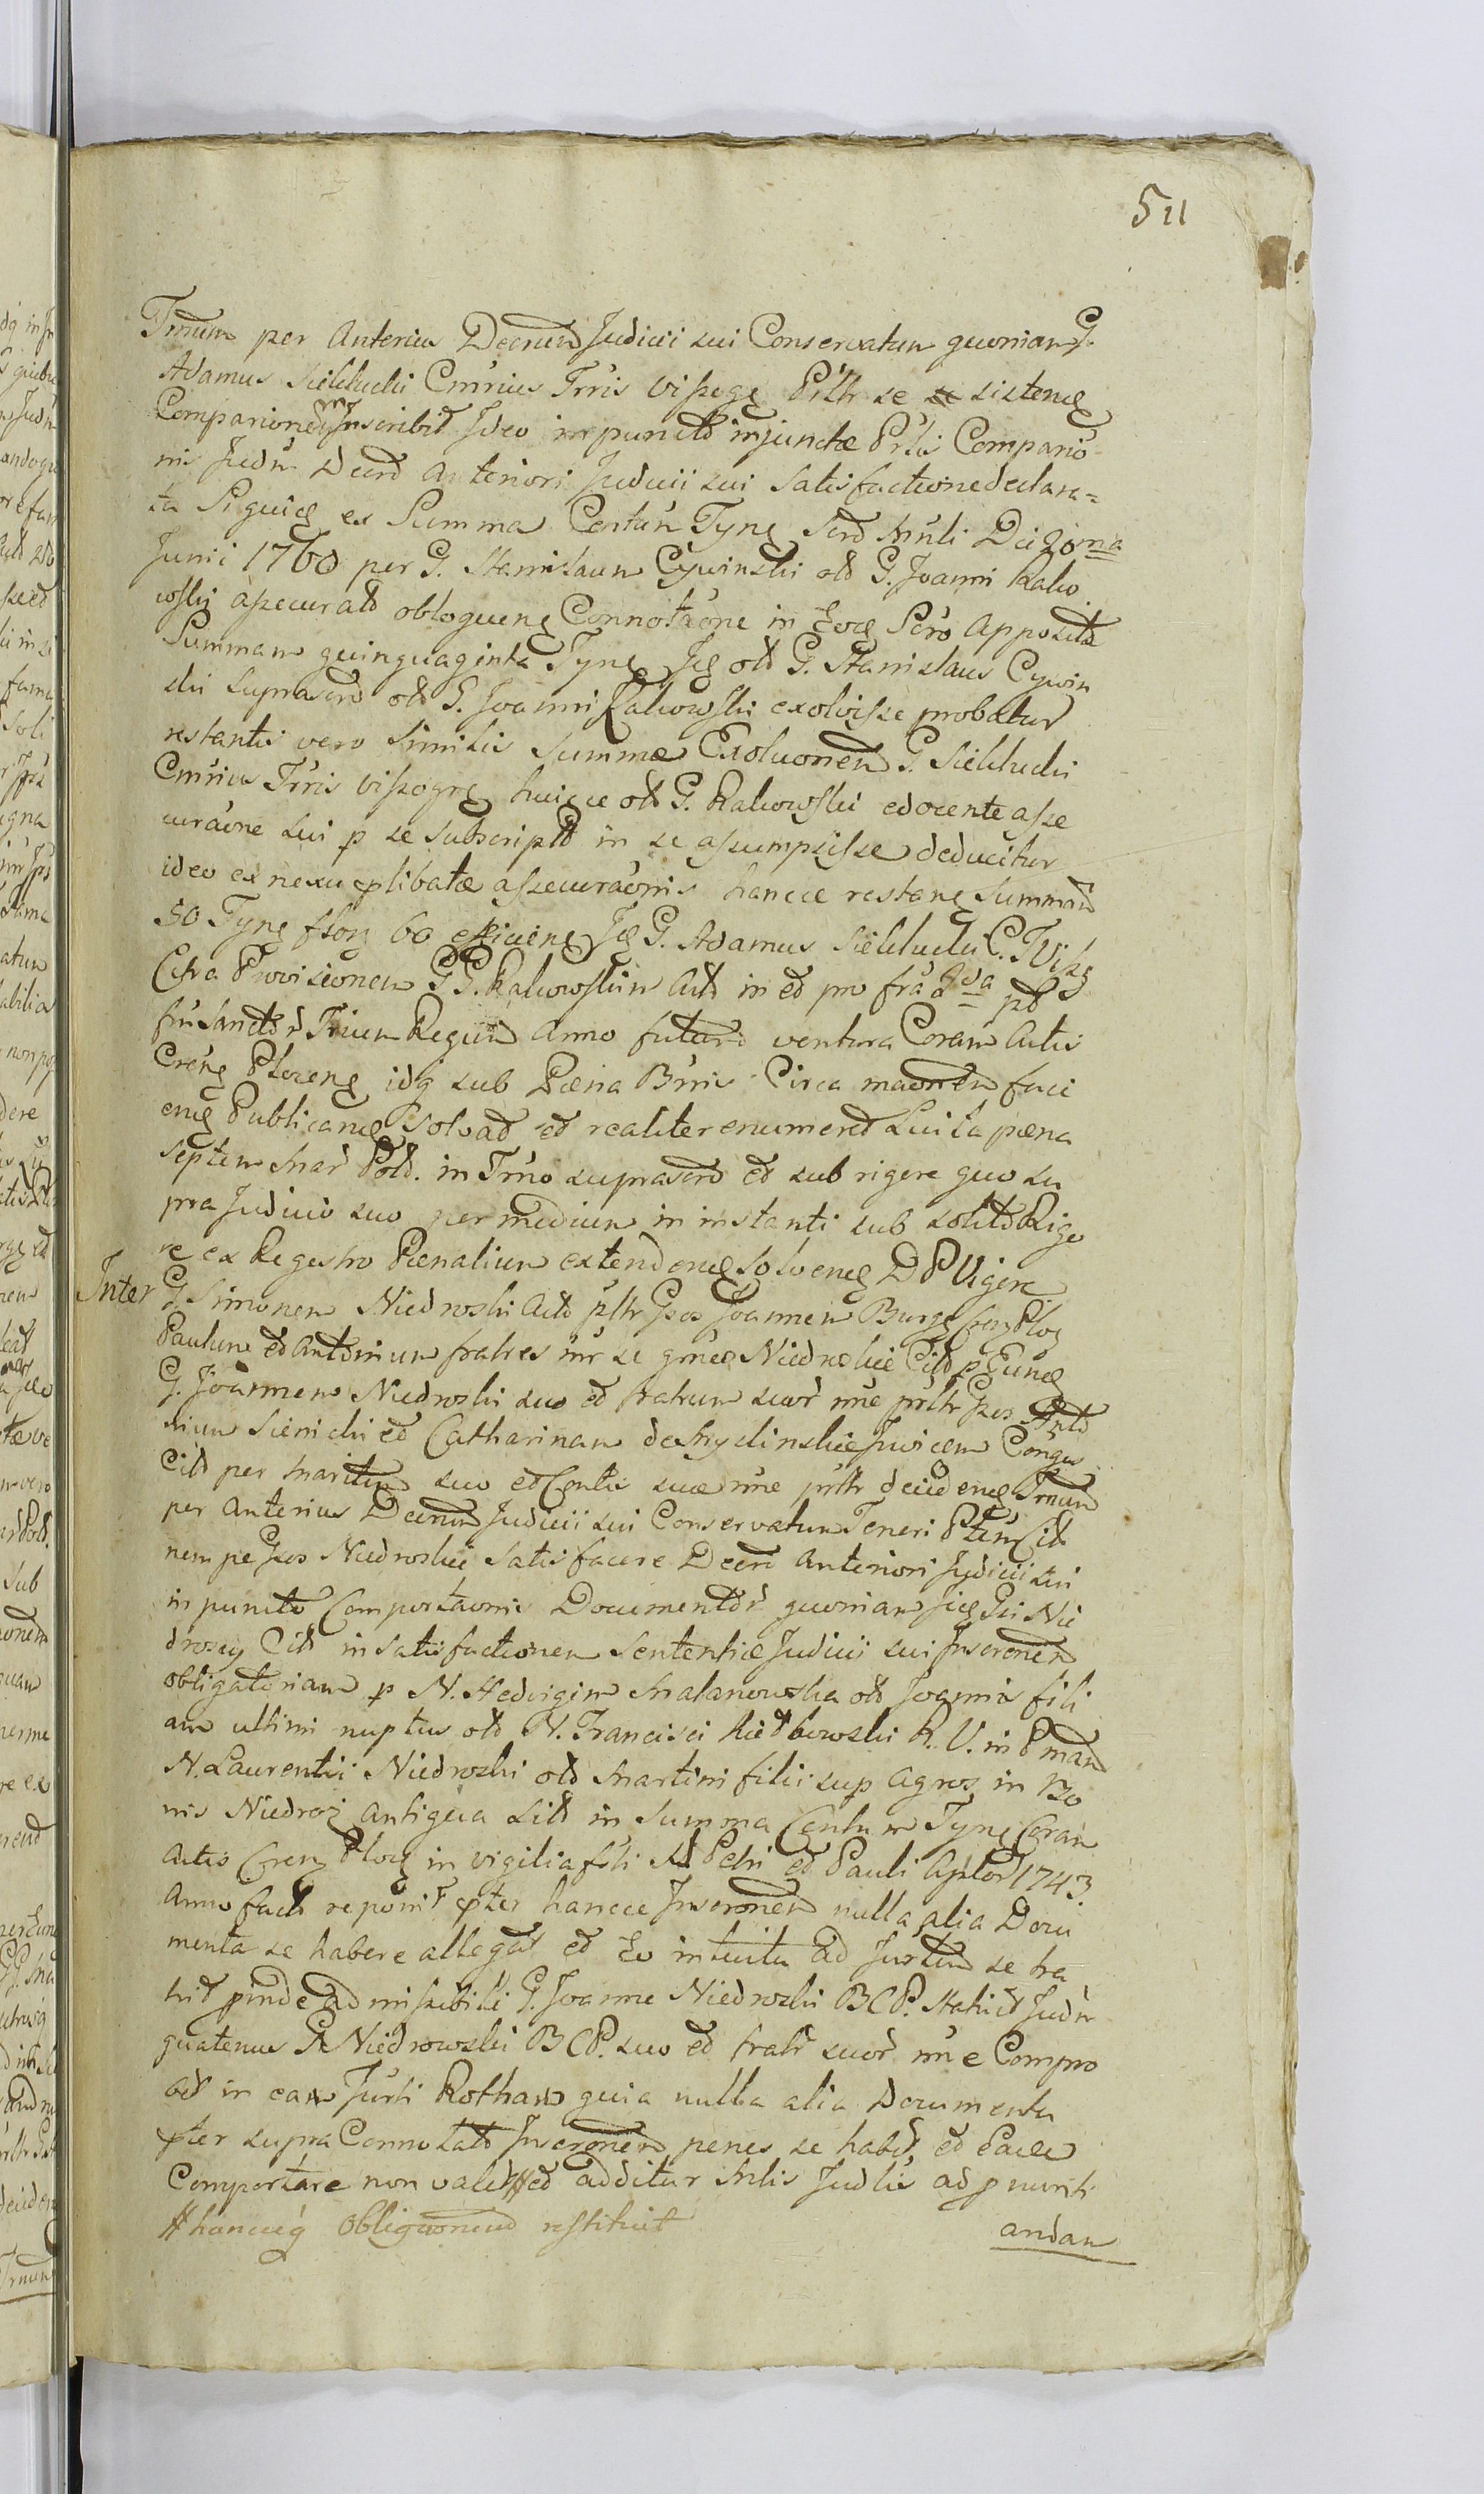 511
Trnum per Anterius Decrum Judicii sui Conservatum quoniam G.
Adamus Sieklucki Cmrius Trris Viszog Prltr se se sistens
Comparionem Inscribit Ideo in puncto injunctæ Prlis Compario
nis Judm Decro Anteriori Judicii sui Satisfactione declara=
ta Siquid ex Summa Centum Tynf Scro Mnli Die 20ma
Junii 1760 per G. Stanislaum Cywinski olo G. Joanni Rako
wski assecurato obloquens Connotaone in Scro Apposita
Summam quinquaginta Tynf olo G. Stanislaus Cywin
ski suprascro olo G. Joanni Rakowski exolvisse probatur
restantis vero Similis Summæ Exoluonem G. Sieklucki
Cmrius Trris Viszogr huicce olo G. Rakowski edocente asse
curaone sui p se subscripto in se assumpsisse deducitur
ideo ex nexu plibatæ assecuraonis hancce restans Summam
50 Tynf flor 60 efficiens G. Adamus Sieklucki C. T. Visz
Citra Provisionem GG. Rakowskim Acto in et pro fra 2da pt
frm Sancto Trium Regum Anno futuro ventura Coram Actis
Crens Plocens idq sub Pæna Bnis Circa maonem faci
ens Publicans solvat et realiter enumeret Luita pæna
septem Mar Pol. in Trno suprascro et sub rigore quo su
pra Judicio suo per medium in instanti sub solito Rigo
re ex Regestro Pænalium extendens solvens D P Vigere
Inter G. Simonem Niedroski Acto prltr Gsos Joannem Burg Cren Ploc
Paulum et Antonium fratres inr se gmes Niedroskie Cito p Eund
G. Joannem Niedroski suo et fratrum suor nne prltr Gsos Anto
nium Sienicki et Catharinam de Mydlinskie Invicem Conges
Cito per Maritum suo et Contis suæ nne prltr deciden Trnum
per Anterius Decrum Judicii sui Conservatum Teneri Ptem Cit
nempe Gsos Niedroskie Satisfacere Decro Anteriori Judicii sui
in puncto Comportaonis Documentor quoniam Gsi Nie
droscy Cito in satisfactionem Sententiæ Judicii sui Inscronem
obligatoriam p N. Hedvigim Malanowska olo Joannis fili
am ultimi nuptus olo N. Francisci Kiełbowski R. V. in
N. Laurentii Niedroski olo Martini filii sup Agros in Bo
nis Niedroż Antiqua sito in Summa Centum Tynf Coram
Actis Cren Ploc in vigilia fsti SS Petri et Pauli Aplor 1743
Anno facto reponit pter hancce Inscronem nulla alia Docu
menta se habere allegat et Eo intuitu ad Jurtum se tra
hit pinde admissibili G. Joanne Niedroski BCP. Statuit Judm
quatenus G Niedrowski BCP. suo et fratr suor nne Compro
bet in eam Jurti Rotham quia nulla alia Documenta
pter supra Connotato Inscronem penes se habet et Eaece
Comportare non valet # et additur Mlis Judlis ad pnunti
# hancceq Obliguonem restituit
andam